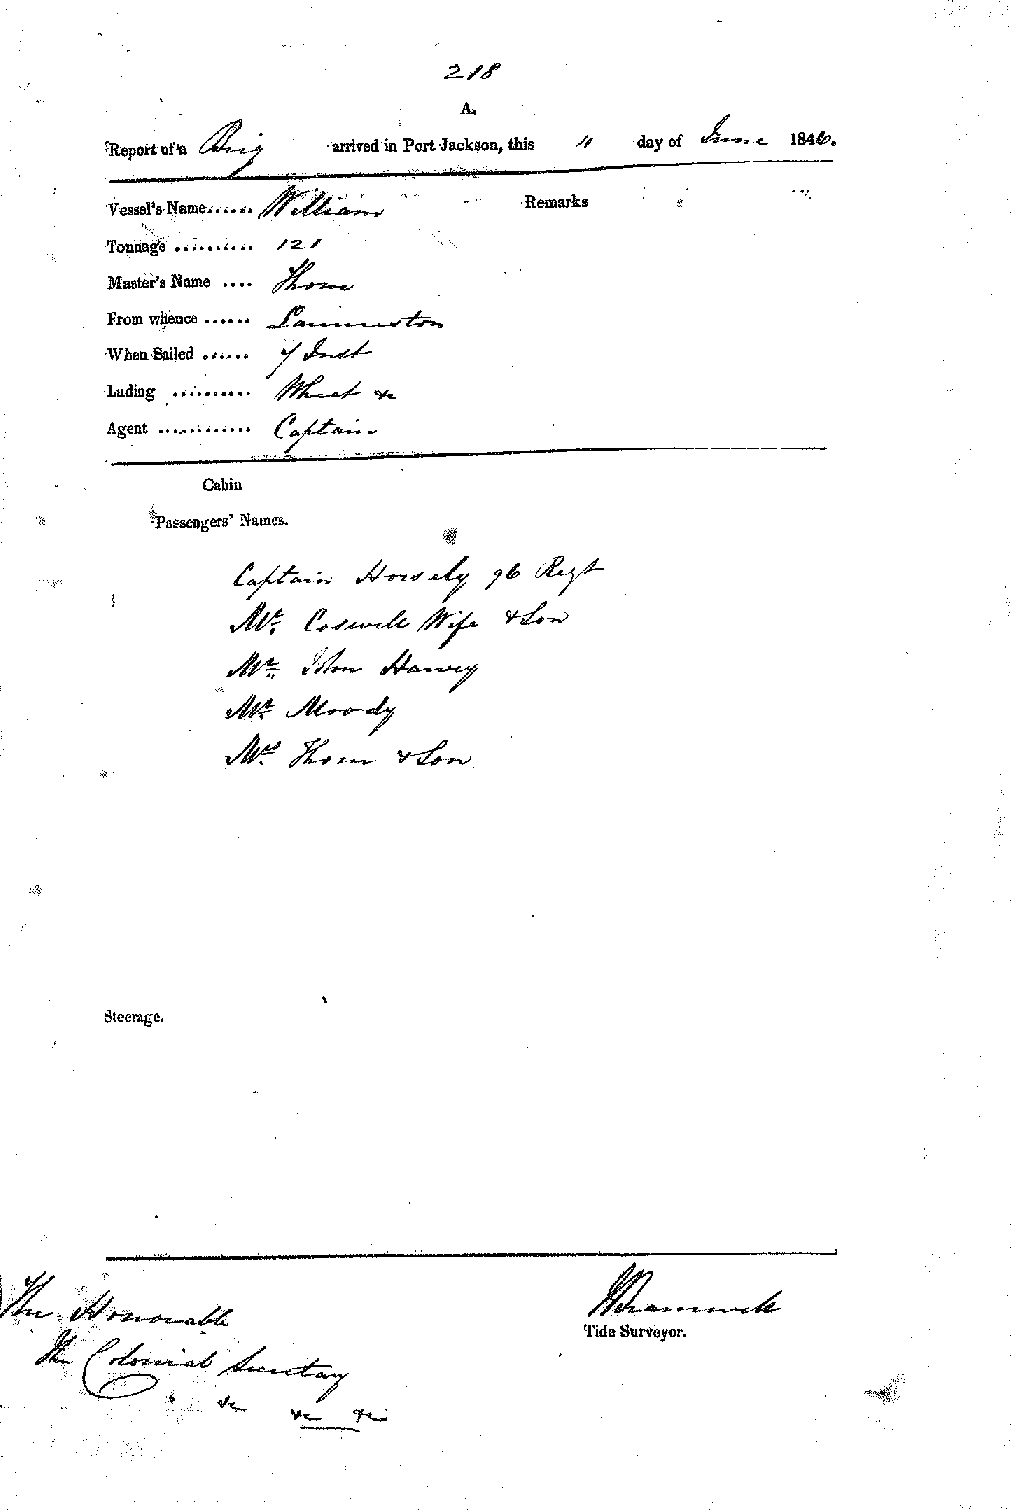 218
A.
Report of a Brig arrived in Port Jackson, this 11 day of June 1846.
Vessel's Name...... William Remarks
Tonnage .......... 121
Master's Name .... Thom
From whence ...... Launceston
When Sailed ...... 7 Inst
Lading .......... Wheat &c
Agent ............ Captain
Cabin
Passengers' Names.
Captain Horsely 96 Regt
Mr. Coswell Wife & Son
Mr. John Harvey
Mr. Moody
Mrs. Thom & Son
Steerage.
The Honorable
Tide Surveyor.
The Colonial Secretary
&c &c &c